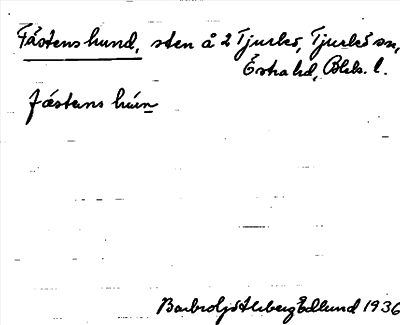 Fästens hund, sten å 2 Tjurkö, Tjurkö sn,
Östra hd, Blek. l.
fästens hún
Barbro Ljdahlberg Edlund 1936